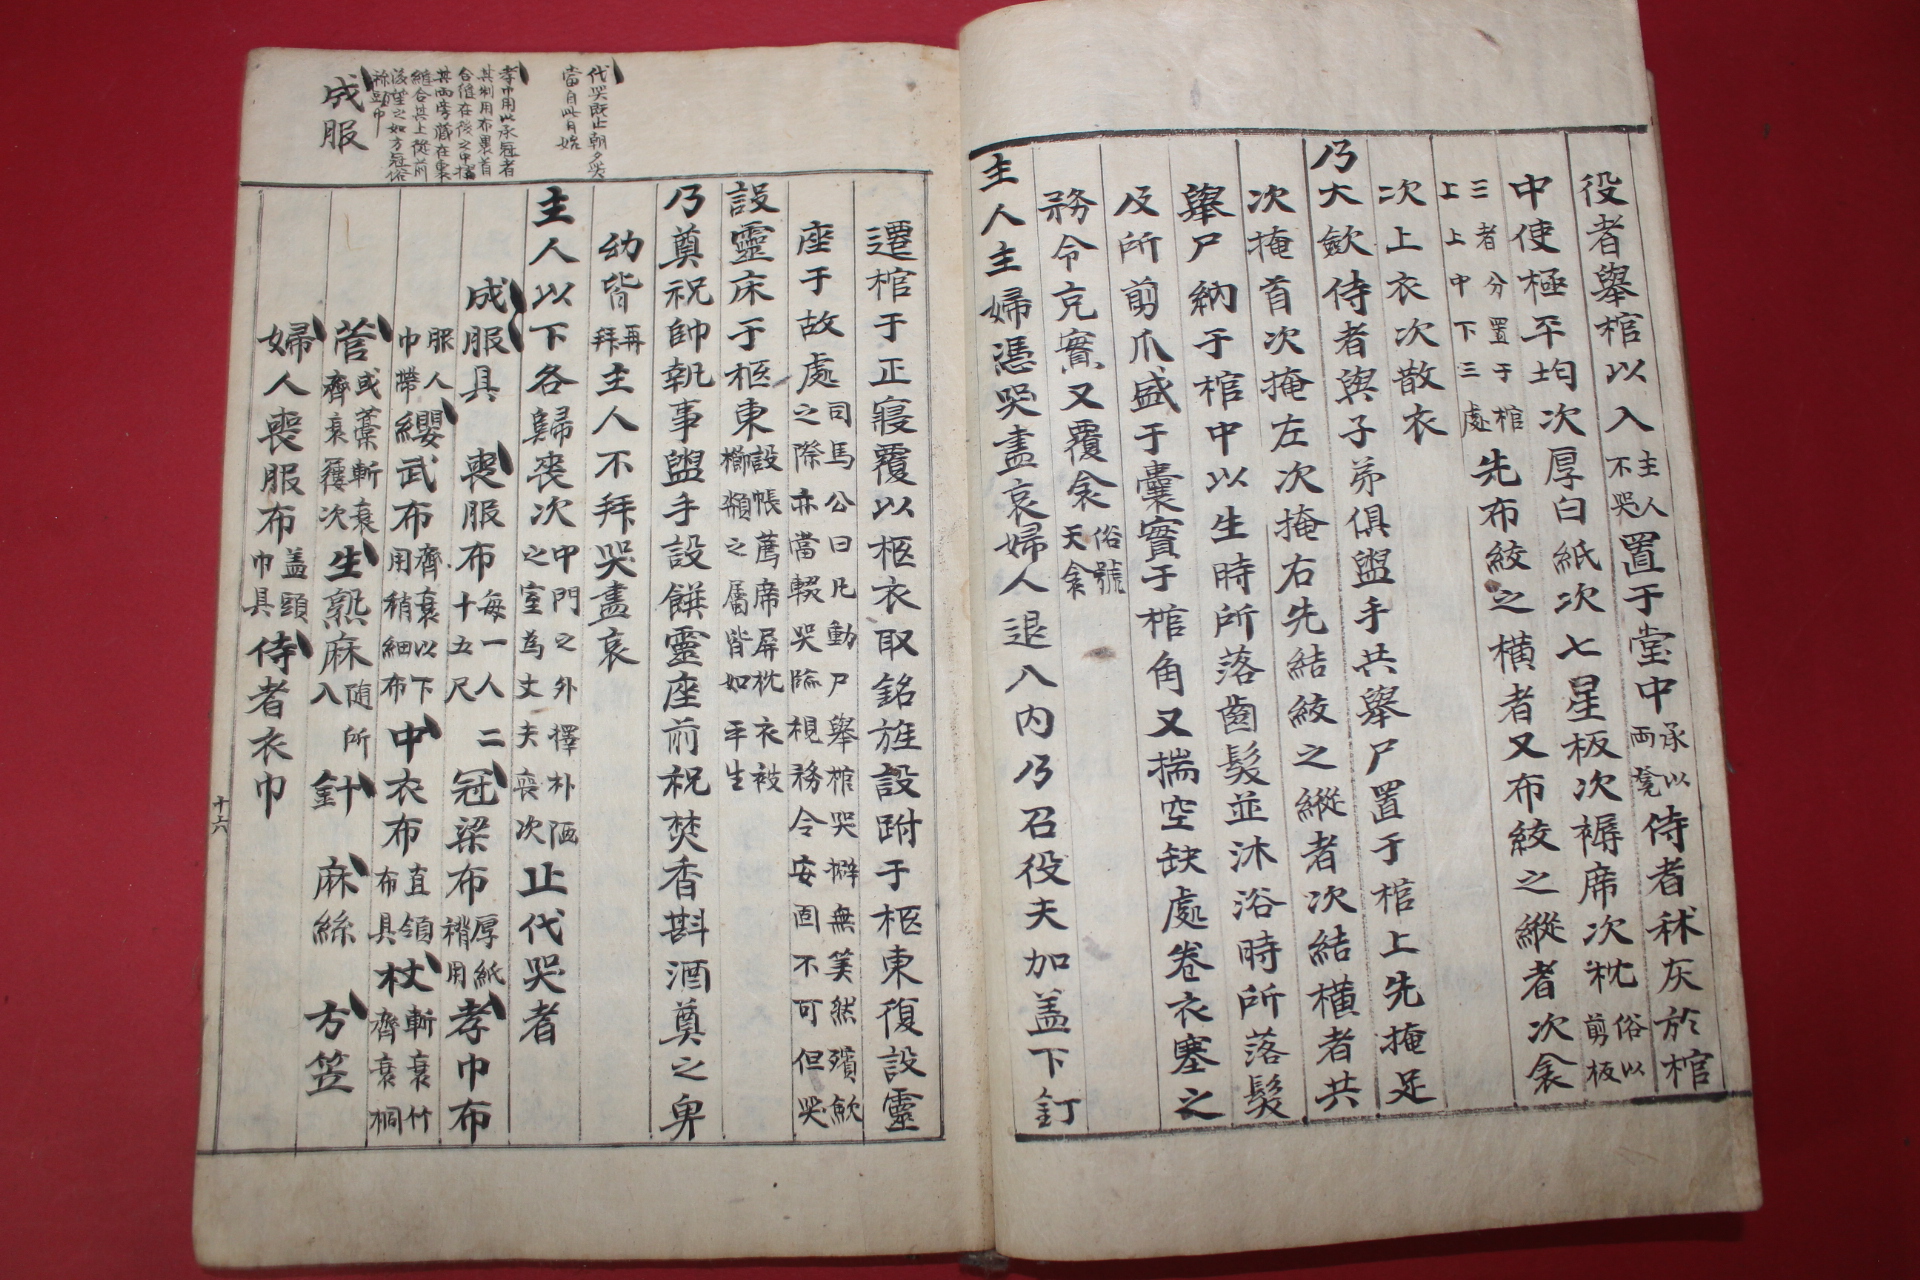 役者擧棺以入主人不哭置于堂中承以兩凳侍者秫灰於棺
中使極平均次厚白紙次七星板次褥席次枕俗以剪板
三者分置于棺上上中下三處先布絞之橫者又布絞之縱者次衾
次上衣次散衣
乃大歛侍者與子弟俱盥手共擧尸置于棺上先掩足
次掩首次掩左次掩右先結絞之縱者次結橫者共
擧尸納于棺中以生時所落齒髮並沐浴時所落髮
及所剪爪盛于囊實于棺角又揣空缺處卷衣塞之
務令充實又覆衾俗號天衾
主人主婦憑哭盡哀婦人退入內乃召役夫加盖下釘
代哭旣止朝夕哭
當自此日始
孝巾用以承冠者
其制用布裹首
合縫在後之中摺
其兩旁藏在裏
縫合其上從前
後望之如方冠俗
稱頭巾
成服
遷棺于正寢覆以柩衣取銘旌設跗于柩東復設靈
座于故處司馬公曰凡動尸擧棺哭擗無筭然殯歛之際亦當輟哭臨視務令安固不可但哭
設靈床于柩東設帳薦席屛枕衣被櫛頮之屬皆如平生
乃奠祝帥執事盥手設饌靈座前祝焚香斟酒奠之卑
幼皆再拜主人不拜哭盡哀
主人以下各歸喪次中門之外擇朴陋之室爲丈夫喪次止代哭者
成服具 喪服布每一人十五尺二冠梁布厚紙稍用孝巾布
服人巾帶纓武布齊衰以下用稍細布中衣布直領布具杖斬衰竹齊衰桐
菅或藁斬衰齊衰屨次生熟麻隨所入針 麻絲 方笠
婦人喪服布盖頭巾具侍者衣巾
十六